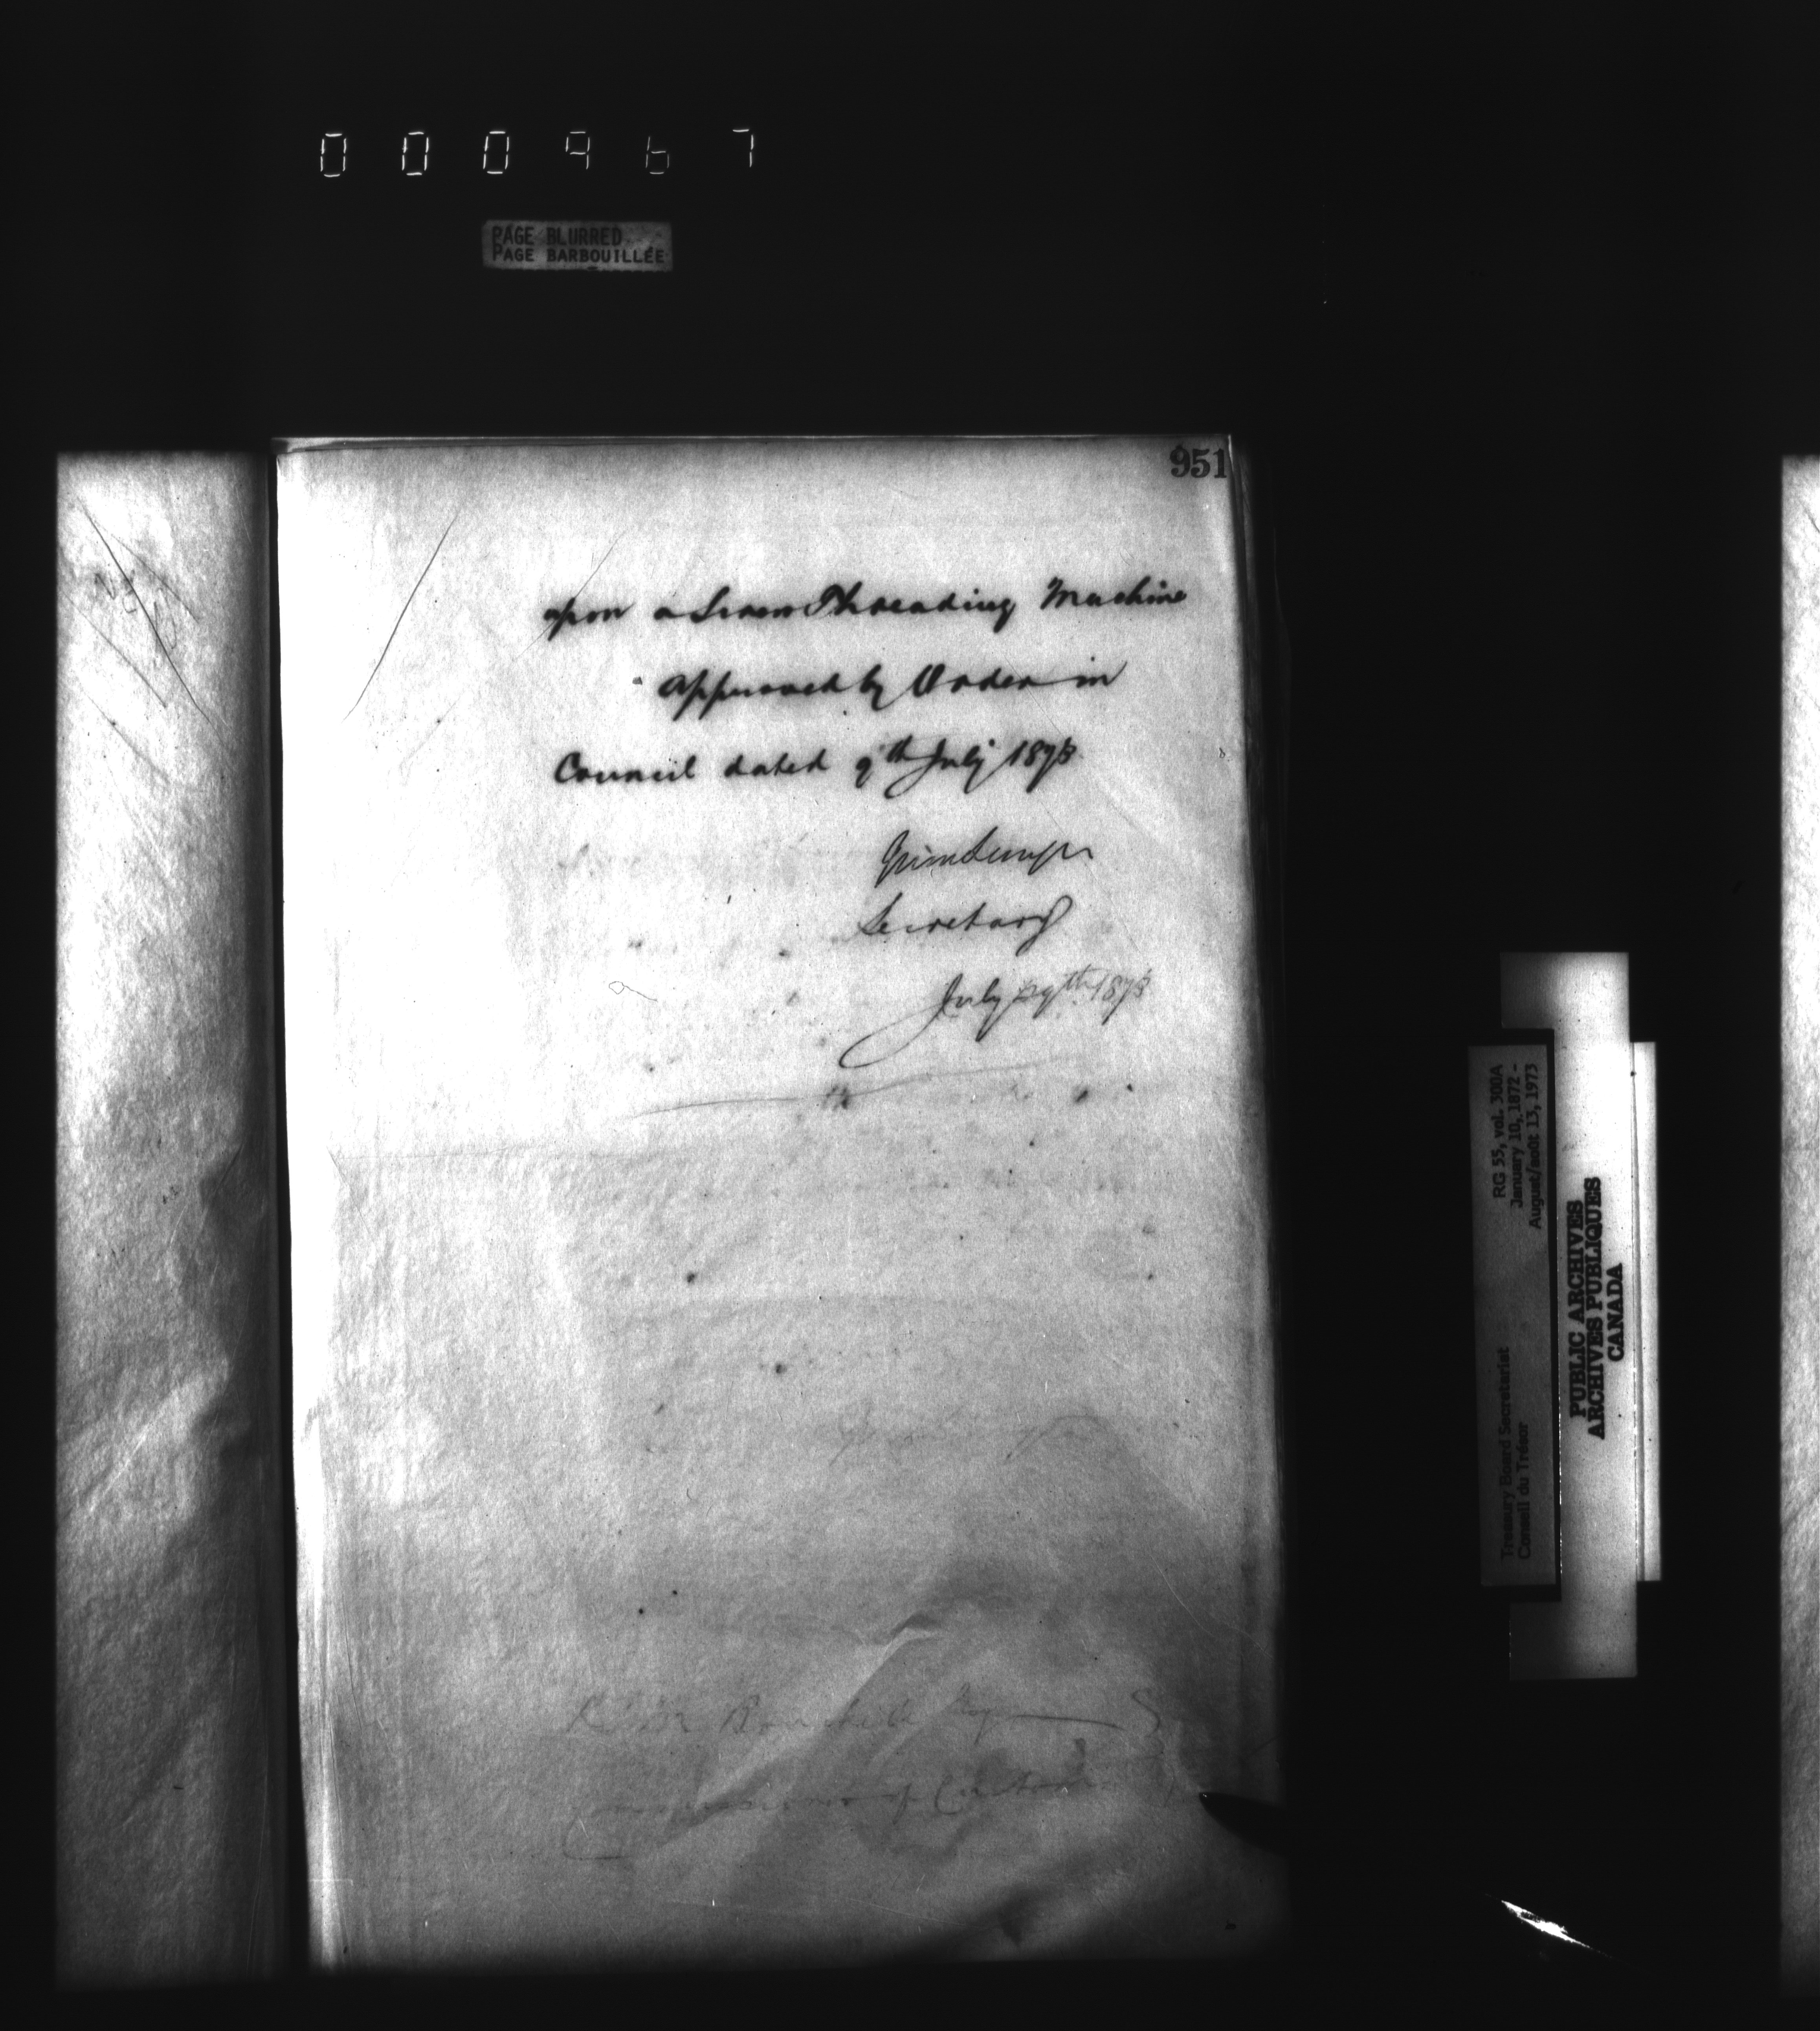 000967
PAGE BLURRED
PAGE BARBOUILLÉE
951
upon a Screw Threading Machine
Approved by Order in
Council dated 9th July 1873
Secretary
July 29th 1873
Commissioner of Customs
RG 55, vol. 300A
January 10, 1872 -
August/août 13, 1973
Treasury Board Secretariat
Conseil du Trésor
PUBLIC ARCHIVES
ARCHIVES PUBLIQUES
CANADA